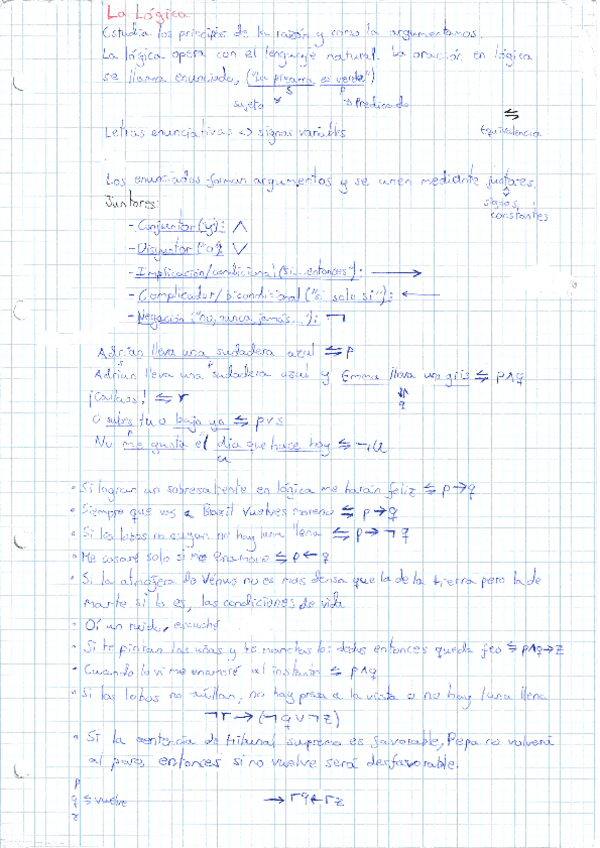 La Lógica
Estudia los principios de la razón y como la argumentamos.
La lógica opera con el lenguaje natural. La oración en lógica
se llama enunciado, ("La pizarra es verde")
S P
sujeto Predicado
⇆
Letras enunciativas => signos variables Equivalencia
Los enunciados forman argumentos y se unen mediante juntores.
Juntores: signos
constantes
- Conjuntor ("y"): ∧
- Disyuntor ("o"): ∨
- Implicación/condicional ("si... entonces"): →
- Coimplicador/bicondicional ("si solo si"): ←
- Negación ("no, nunca, jamás..."): ¬
Adrian lleva una sudadera azul ⇆ p
Adrian lleva una sudadera azul y Emma lleva un gris ⇆ p∧q
p
q
¡Callaos! ⇆ r
O subes tu o bajo yo ⇆ p∨s
p
No me gusta el dia que hace hoy ⇆ ¬u
u
• Si logran un sobresaliente en lógica me harán feliz ⇆ p→q
• Siempre que vas a Brasil vuelves moreno ⇆ p→q
• Si los lobos no aúyan no hay luna llena ⇆ p→¬q
• Me casaré solo si me enamoro ⇆ p←q
• Si la atmósfera de Venus no es mas densa que la de la tierra pero la de
marte si lo es, las condiciones de vida
• Oí un ruido, escuché
• Si te pintan las uñas y te manchas los dedos entonces queda feo ⇆ p∧q→z
• Cuando lo vi me enamoré al instante ⇆ p∧q
• Si los lobos no aúllan, no hay presa a la vista o no hay luna llena
¬r → (¬q∨¬z)
• Si la sentencia de tribunal supremo es favorable, Pepa no volverá
al paro, entonces si no vuelve será desfavorable.
p
q ⇆ vuelve → ¬q←¬z
z